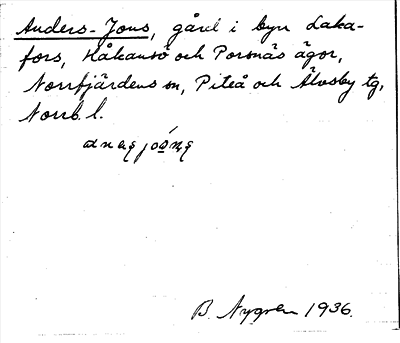 Anders-Jons, gård i byn Laka-
fors, Håkansö och Porsnäs ägor,
Norrfjärdens sn, Piteå och Älvsby tg,
Norrb. l.
B. Nygren 1936.